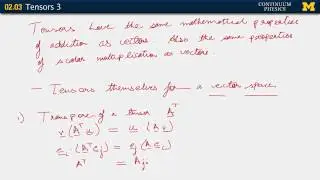 02.03 Tensors 3
CONTINUUM PHYSICS
M
Tensors have the same mathematical properties
of addition as vectors. Also the same properties
of scalar multiplication as vectors.
- Tensors themselves form a vector space
1) Transpose of a tensor A^T
v·(A^T u) = u·(A v)
e_i·(A^T e_j) = e_j·(A e_i)
A^T = A_ji